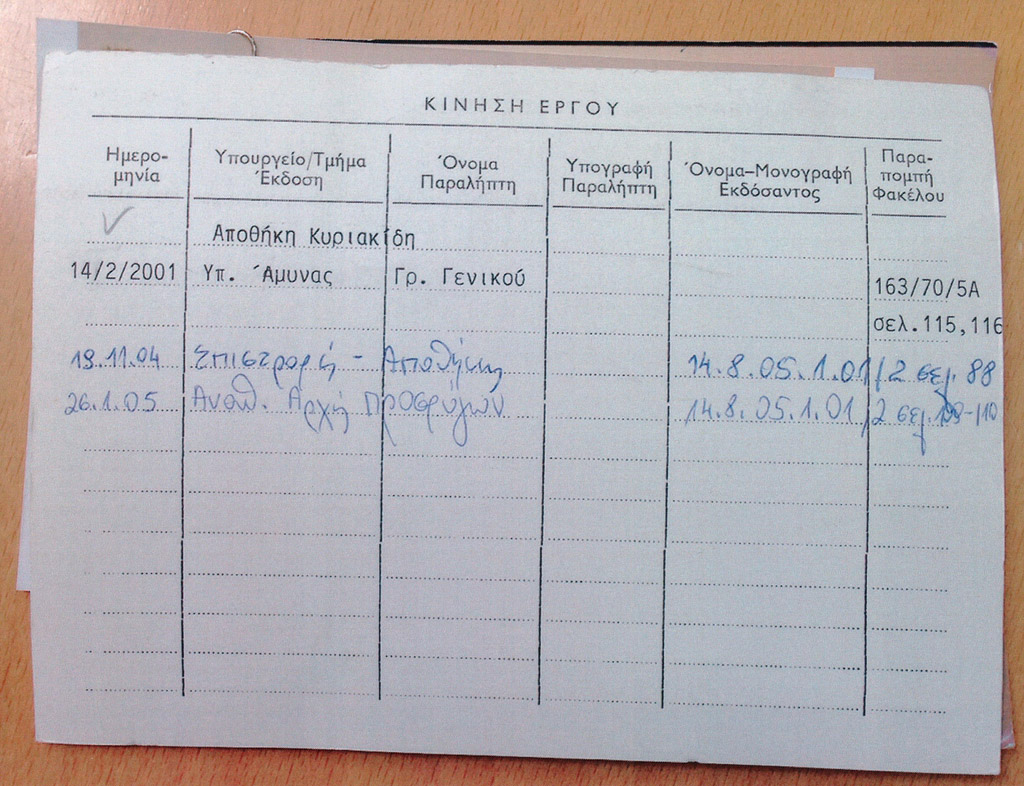 ΚΙΝΗΣΗ ΕΡΓΟΥ
Ημερο-
μηνία
Υπουργείο/Τμήμα
Έκδοση
Όνομα
Παραλήπτη
Υπογραφή
Παραλήπτη
Όνομα–Μονογραφή
Εκδόσαντος
Παρα-
πομπή
Φακέλου
Αποθήκη Κυριακίδη
14/2/2001 Υπ. Άμυνας Γρ. Γενικού 163/70/5Α
σελ.115,116
19.11.04 Επιστροφή - Αποθήκη 14.8.05.1.01/2 σελ. 88
26.1.05 Αναθ. Αρχή Προσφύγων 14.8.05.1.01/2 σελ. 109-110